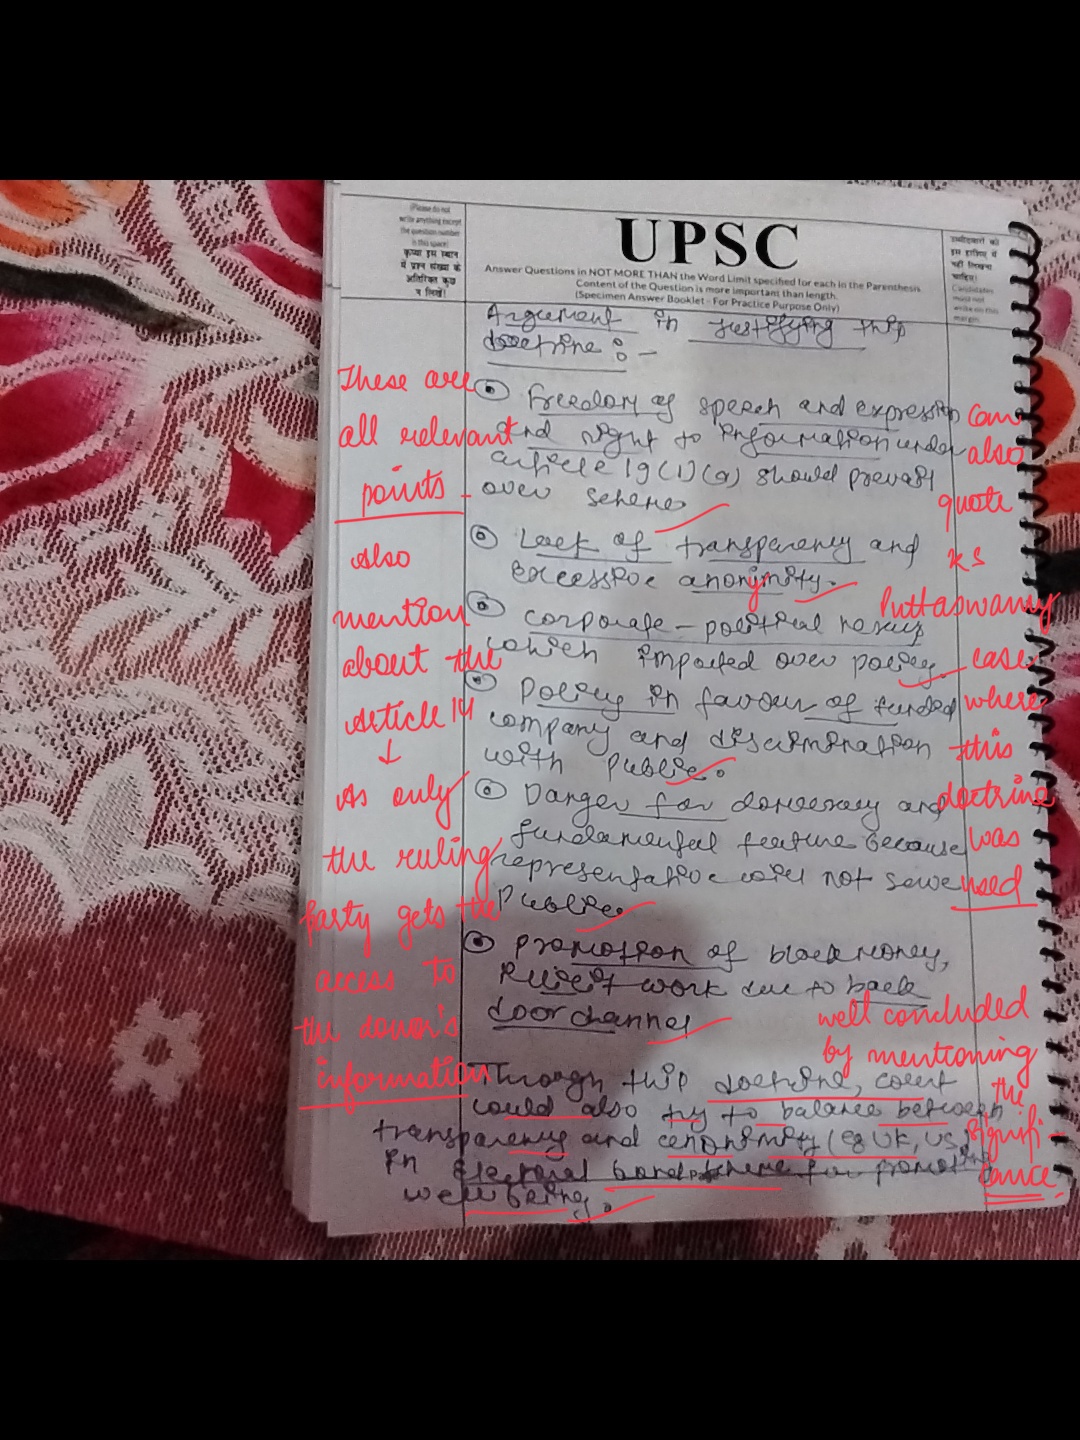 (Please do not
write anything except
the question number
in this space)
कृपया इस स्थान
में प्रश्न संख्या के
अतिरिक्त कुछ
न लिखें।
UPSC
Answer Questions in NOT MORE THAN the Word Limit specified for each in the Parenthesis.
Content of the Question is more important than length.
(Specimen Answer Booklet - For Practice Purpose Only)
उम्मीदवारों को
इस हाशिए में
नहीं लिखना
चाहिए।
Candidates
must not
write on this
margin.
Argument in justifying this
doctrine :-
Freedom of speech and expression
and right to information under
article 19(1)(a) should prevail
over scheme
Lack of transparency and
excessive anonymity.
corporate - political nexus
which impacted over policy.
Policy in favour of funded
company and discrimination
with public.
Danger for democracy and
fundamental feature because
representative will not serve
public
promotion of black money,
illicit work due to back
door channel
Through this doctrine, court
could also try to balance between
transparency and anonymity (eg UK, US)
in electoral bond scheme for promoting
well being.
These are
all relevant
points -
Also
mention
about the
Article 14
↓
As only
the ruling
party gets the
access to
the donor's
information
Can
also
quote
KS
Puttaswamy
case
where
this
doctrine
was
used
well concluded
by mentioning
the
signifi-
cance.